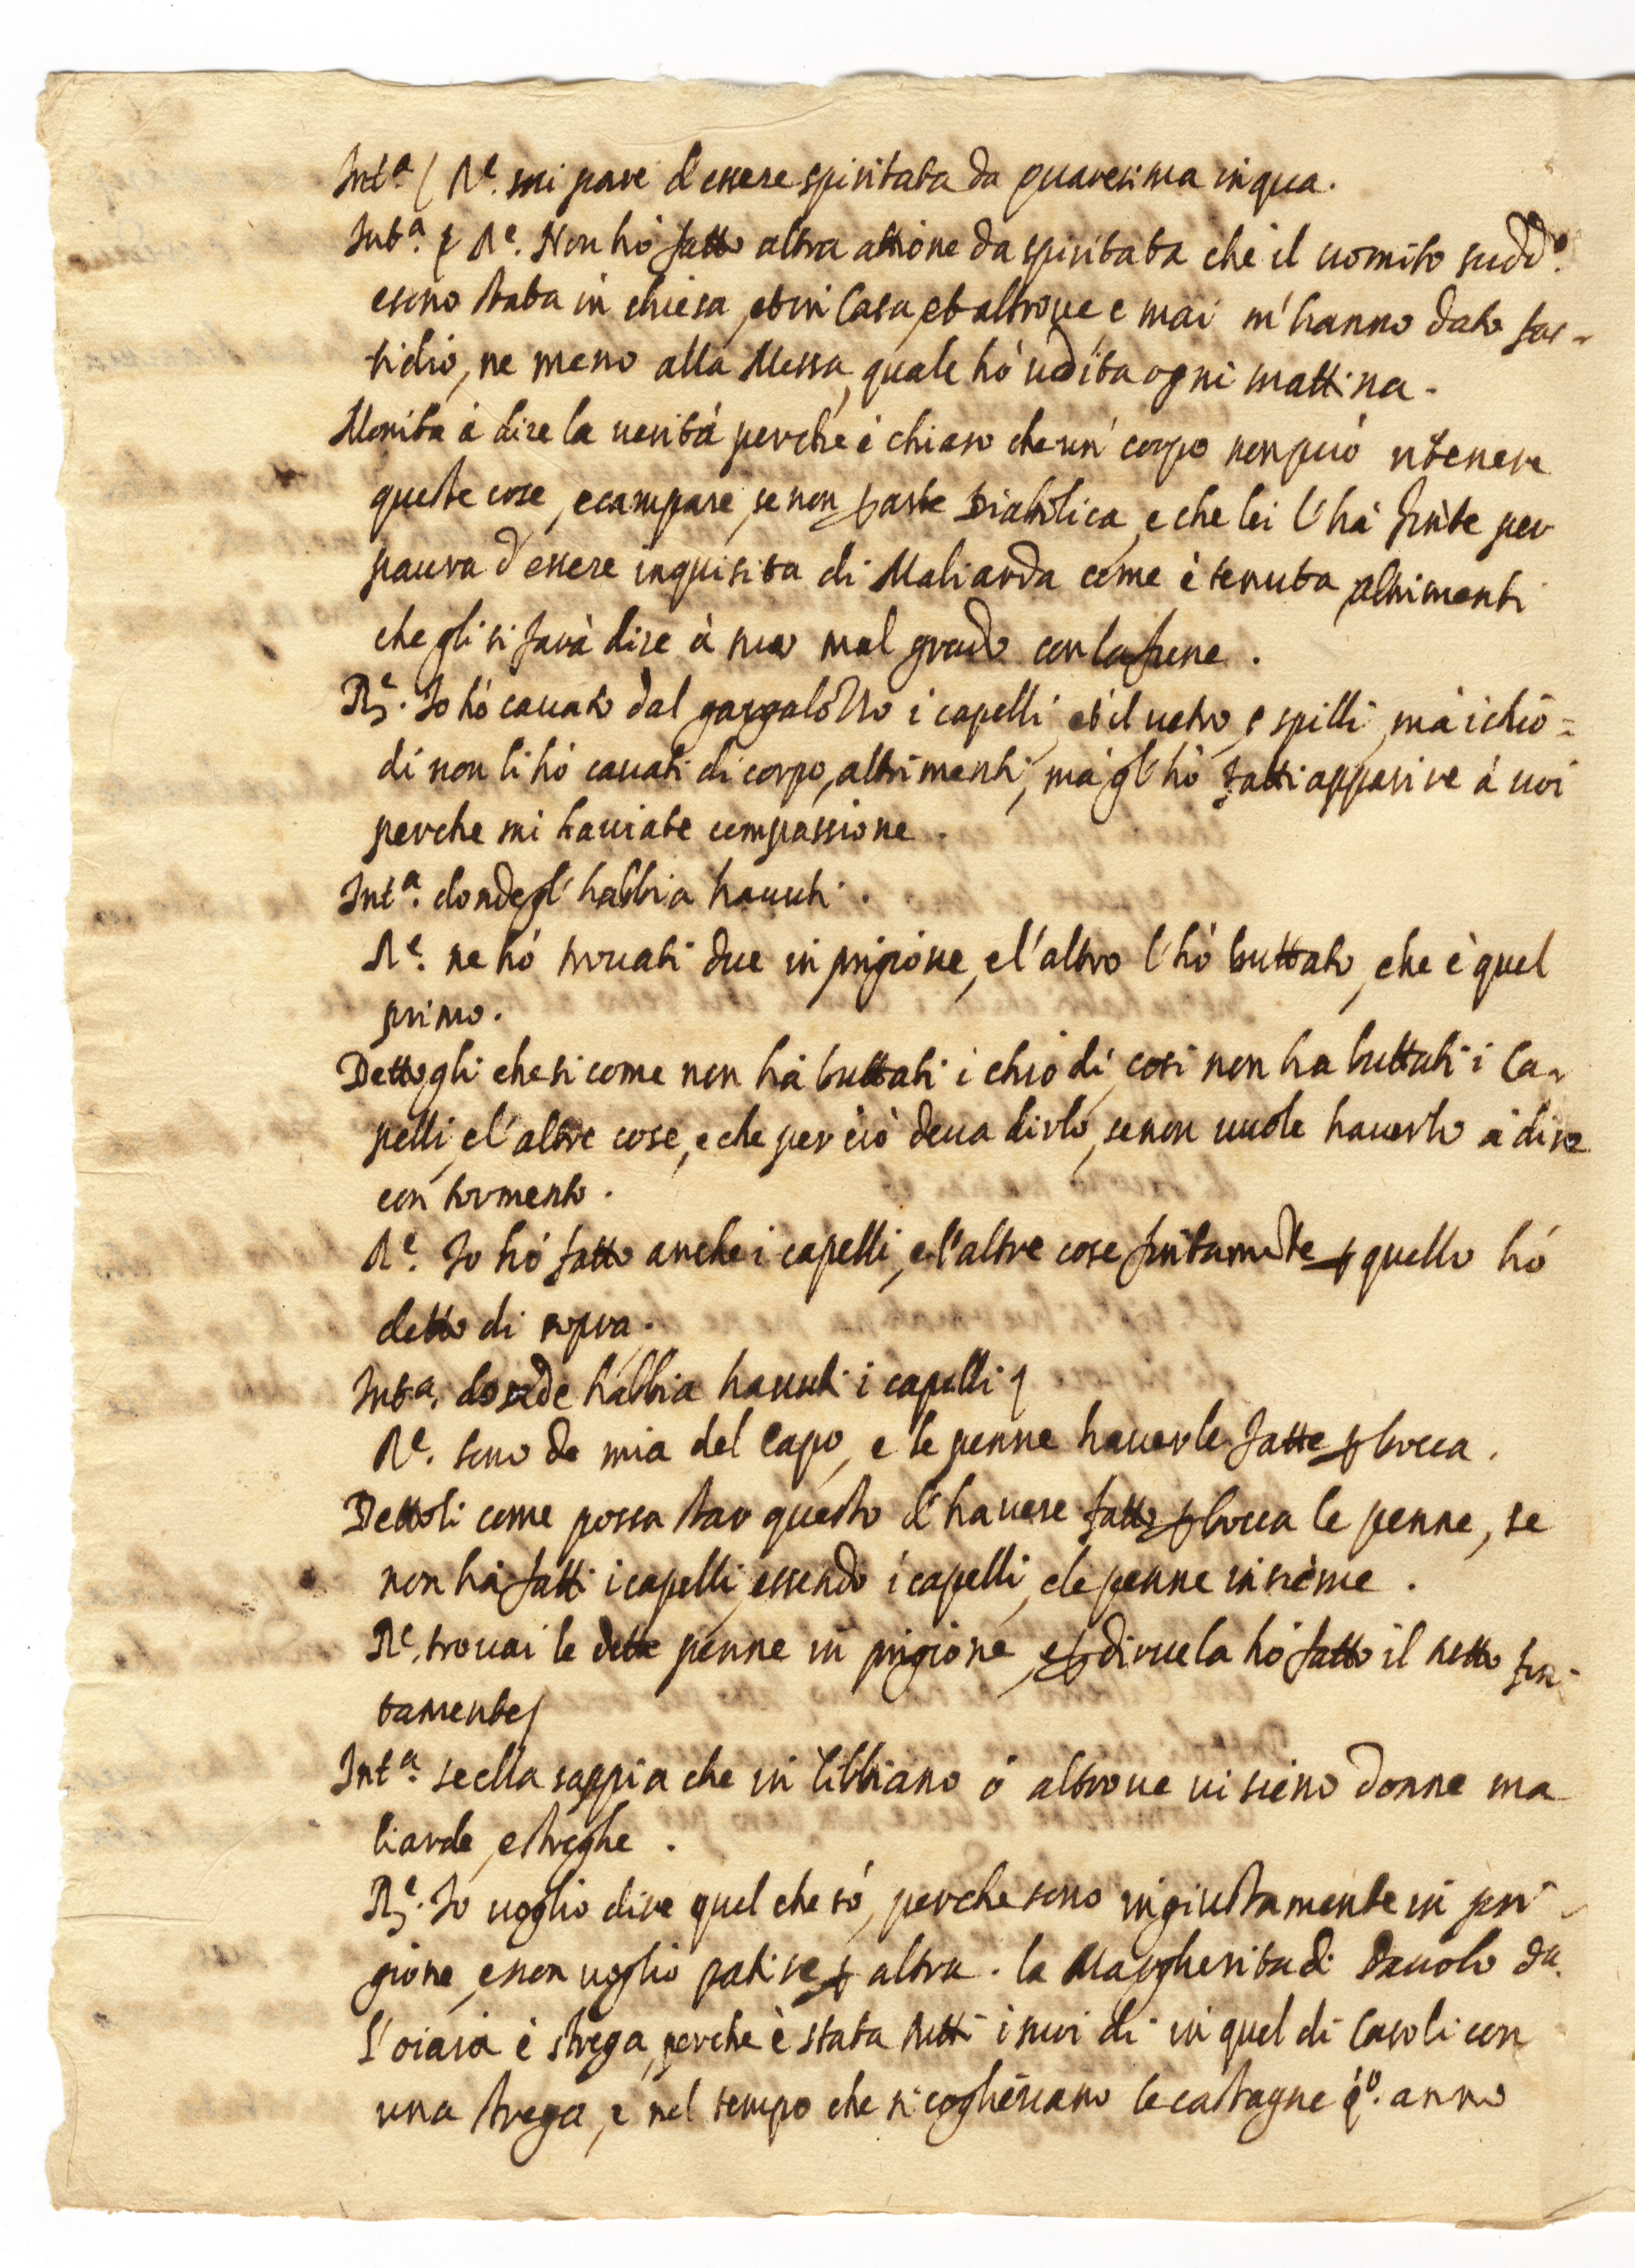 Int.a / R.e mi pare d'essere spiritata da quaresima inqua.
Int.a / R.e Non hò fatto altra attione da spiritata che il uomito sudd.o
e sono stata in chiesa, et in Casa, et altroue e mai m'hanno dato fas-
tidio, ne meno alla Messa, quale hò udita ogni mattina.
Monita à dire la uerità perche è chiaro che un' corpo non può ritenere
queste cose, e campare, se non p arte Diabolica, e che lei l'hà finte per
paura d'essere inquisita di Maliarda come è tenuta, altrimenti
che gli si farà dire à suo mal grado con la fune.
R.e Io hò cauato dal gargalozzo i capelli, et il uetro, e spilli, mà i chio=
di non li hò cauati di corpo, altrimenti, mà gl'hò fatti apparire à uoi
perche mi hauiate compassione.
Int.a donde gl'habbia hauuti.
R.e ne hò trouati due in prigione, e l'altro l'hò buttato, che è quel
primo.
Dettogli che si come non hà buttati i chiodi, cosi non ha buttati i Ca-
pelli, e l'altre cose, e che per ciò deua dirlo, se non uuole hauerlo à dire
con tormento.
R.e Io hó fatto anche i capelli, e l'altre cose fintam.te p quello hó
detto di sopra.
Int.a donde habbia hauuti i capelli
R.e sono de mia del Capo, e le penne hauerle fatte p bocca.
Dettoli come possa star questo d'hauere fatto p bocca le penne, se
non hà fatti i capelli, essendo i capelli, e le penne insieme.
R.e trouai le dette penne in prigione, e p diruela hó fatto il tutto fin-
tamente/
Int.a se ella sappia che in Libbiano ó altroue ui sieno donne ma
liarde, e streghe.
R.e Io uoglio dire quel che só, perche sono ingiustamente in pri-
gione, e non uoglio patire p altra. la Margherita di Pauolo da
L'oiaia è strega, perche è stata tutti i suoi di in quel di Casoli con
una strega, e nel tempo che si coglieuano le castagne q.o anno